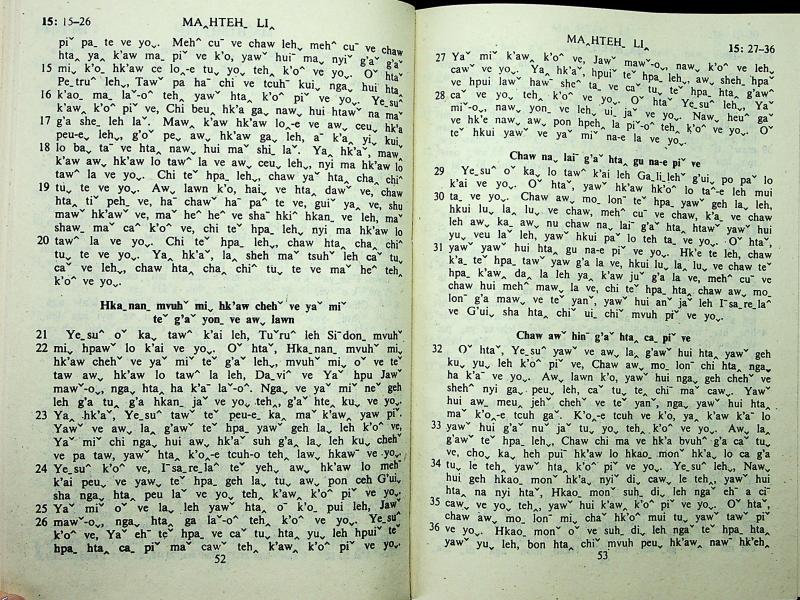 15: 15-26 MA‸HTEH_ LI‸
piˇ pa_ te ve yo⌄. Mehˆ cuˉ ve chaw leh⌄ mehˆ cuˉ ve chaw
hta⌄ ya‸ k'aw ma‸ pi ve k'o, yaw˘ hui˘ ma⌄ nyi˘ g'a˘ g'a˘
15 mi⌄ k'o_ hk'aw ce lo‸-e tu⌄ yo⌄ teh‸ k'oˆ ve yo⌄. Oˇ hta˘
Pe_truˆ leh⌄, Taw˘ pa ha˘ chi ve tcuhˉ kui⌄ nga⌄ hui hta‸
16 k'ao‸ ma‸ la˘-oˆ teh‸ yaw˘ hta‸ k'oˆ pi˘ ve yo⌄. Ye_suˆ
k'aw‸ k'oˆ pi˘ ve, Chi beu⌄ hk'a ga‸ naw⌄ hui htaw˘ na ma˘
17 g'a she_ leh la˘. Maw‸ k'aw hk'aw lo‸-e ve aw‸ ceu⌄ hk'a
peu-e leh⌄, g'oˇ pe⌄ aw‸ hk'aw ga‸ leh, aˉ k'a‸ yi⌄ kui⌄
18 lo ba‸ ta˘ ve hta‸ naw⌄ hui ma˘ shi_ la˘. Ya‸ hk'a˘, maw‸
k'aw aw‸ hk'aw lo tawˆ la ve aw⌄ ceu leh⌄, nyi ma hk'aw lo
tawˆ la ve yo⌄. Chi te˘ hpa_ leh⌄, chaw ya˘ hta‸ cha‸ chiˆ
19 tu⌄ te ve yo⌄. Aw⌄ lawn k'o, hai⌄ ve hta‸ daw˘ ve, chaw
hta‸ ti˘ peh_ ve, haˉ chaw˘ haˉ paˆ te ve, gui˘ ya‸ ve, shu
maw˘ hk'aw˘ ve, ma˘ heˆ heˆ ve sha˘ hki˘ hkan_ ve leh, ma˘
shaw_ ma˘ caˆ k'oˆ ve, chi te˘ hpa_ leh⌄ nyi ma hk'aw lo
20 tawˆ la ve yo⌄. Chi te˘ hpa_ leh⌄, chaw hta‸ cha‸ chiˆ
tu⌄ te ve yo⌄. Ya‸ hk'a˘, la‸ sheh ma˘ tsuh˘ leh ca˘ tu⌄
ca˘ ve leh⌄, chaw hta‸ cha‸ chiˆ tu⌄ te ve ma˘ heˆ teh‸
k'oˆ ve yo⌄.
Hka_nan_ mvuh˘ mi⌄ hk'aw cheh˘ ve ya˘ mi˘
te˘ g'a˘ yon_ ve aw⌄ lawn
21 Ye_suˆ oˇ ka⌄ tawˆ k'ai leh, Tu˘ru˘ leh Siˉdon_ mvuh˘
22 mi⌄ hpaw˘ lo k'ai ve yo⌄. Oˇ hta˘, Hka_nan_ mvuh˘ mi⌄
hk'aw cheh˘ ve ya˘ mi˘ te˘ g'a˘ leh⌄, mvuh˘ mi⌄ oˇ ve te˘
taw aw‸ hk'aw lo tawˆ la leh, Da⌄vi˘ ve Ya˘ hpu Jaw
maw˘-o⌄, nga‸ hta‸ ha k'a˘ la˘-oˆ. Nga‸ ve ya˘ mi˘ ne˘ geh
leh g'a tu‸ g'a hkan_ ja˘ ve yo⌄ teh‸, g'a˘ hte ku‸ ve yo⌄.
23 Ya‸ hk'a˘, Ye_suˆ taw˘ te˘ peu-e ka⌄ ma˘ k'aw‸ yaw pi˘.
Yaw˘ ve aw⌄ la‸ g'aw˘ te˘ hpa_ yaw˘ geh la⌄ leh k'oˆ ve,
Ya˘ mi˘ chi nga‸ hui aw⌄ hk'a˘ suh˘ g'a‸ la⌄ leh ku⌄ cheh˘
ve pa taw, yaw˘ hta‸ k'o‸-e tcuh-o teh‸ law‸ hkawˉ ve yo⌄.
24 Ye_suˆ k'oˆ ve, Iˉsa_re_laˆ te˘ yeh⌄ aw⌄ hk'aw lo mehˉ
k'ai peu⌄ ve yaw˘ te˘ hpa_ geh la⌄ tu⌄ aw⌄ pon ceh G'ui⌄
sha nga‸ hta‸ peu⌄ la˘ ve yo⌄ teh‸ k'aw‸ k'oˆ pi˘ ve yo⌄.
25 Ya˘ mi˘ oˇ ve la⌄ leh yaw˘ hta‸ oˉ k'o⌄ pui leh, Jaw˘
26 maw˘-o⌄, nga‸ hta‸ ga la˘-oˆ teh‸ k'oˆ ve yo⌄. Ye_suˆ
k'oˆ ve, Ya˘ ehˉ te˘ hpa_ ve ca˘ tu⌄ hta‸ yu⌄ leh hpui˘ te˘
hpa_ hta‸ ca‸ pi˘ ma˘ caw˘ teh‸ k'aw‸ k'oˆ pi˘ ve yo⌄.
52
MA‸HTEH_ LI‸ 15: 27-36
27 Ya˘ mi˘ k'aw‸ k'oˆ ve, Jaw˘ maw˘-o⌄, naw⌄ k'oˆ ve leh⌄
caw˘ ve yo⌄. Ya‸ hk'a˘, hpui˘ te˘ hpa_ leh⌄ aw⌄ sheh_ hpa˘
ve hpui law˘ haw˘ sheˆ ta‸ ve ca˘ tu⌄ te˘ hpa_ hta‸ g'aw˘
28 ca˘ ve yo⌄ teh‸ k'oˆ ve yo⌄. Oˇ hta˘ Ye_suˆ leh⌄, Ya˘
mi˘-o⌄, naw⌄ yon_ ve leh⌄ ui⌄ ja˘ ve yo⌄. Naw⌄ heu˘ ga˘
ve hk'e naw⌄ aw⌄ pon hpeh‸ la pi˘-oˆ teh‸ k'oˆ ve yo⌄. Oˇ
te˘ hkui yaw˘ ve ya˘ mi˘ na-e la ve yo⌄.
Chaw na⌄ lai˘ g'a˘ hta‸ gu na-e pi˘ ve
29 Ye_suˆ oˇ ka⌄ lo tawˆ k'ai leh Ga_li_leh˘ g'ui⌄ po pa˘ lo
k'ai ve yo⌄. Oˇ hta˘, yaw˘ hk'aw hk'oˆ lo ta˘-e leh mui
30 ta⌄ ve yo⌄. Chaw aw⌄ mo_ lonˉ te˘ hpa_ yaw˘ geh la⌄ leh,
hkui lu⌄ la‸ lu⌄ ve chaw, mehˆ cuˉ ve chaw, k'a‸ ve chaw
leh aw⌄ ka‸ aw⌄ nu chaw na⌄ lai˘ g'a˘ hta‸ htaw˘ yaw˘ hui
yu⌄ veu˘ la˘ leh, yaw˘ hkui pa˘ lo teh ta⌄ ve yo⌄. Oˇ hta˘,
31 yaw˘ yaw˘ hui hta‸ gu na-e pi˘ ve yo⌄. Hk'e te leh, chaw
k'a‸ te˘ hpa_ taw˘ yaw g'a la ve, hkui lu⌄ la‸ lu⌄ ve chaw te˘
hpa_ k'aw‸ da‸ la leh ya‸ k'aw ju˘ g'a la ve, mehˆ cuˉ ve
chaw hui mehˆ maw˘ la ve, chi te˘ hpa_ hta‸ chaw aw⌄ mo_
lonˉ g'a maw‸ ve te˘ yan˘, yaw˘ hui anˉ ja˘ leh Iˉsa_re_laˆ
ve G'ui⌄ sha hta‸ chi˘ ui⌄ chi˘ mvuh pi˘ ve yo⌄.
Chaw aw˘ hinˉ g'a˘ hta‸ ca‸ pi˘ ve
32 Oˇ hta˘, Ye_suˆ yaw˘ ve aw⌄ la‸ g'aw˘ hui hta‸ yaw˘ geh
ku⌄ yu⌄ leh k'oˆ pi˘ ve, Chaw aw⌄ mo_ lonˉ chi hta‸ nga‸
ha k'a˘ ve yo⌄. Aw⌄ lawn k'o, yaw˘ hui nga‸ geh cheh˘ ve
sheh˘ nyi ga‸ peu⌄ leh, ca˘ tu⌄ te˘ chi˘ ma˘ caw⌄. Yaw˘
hui aw⌄ meu⌄ jeh˘ cheh˘ ve te˘ yan˘, nga‸ yaw˘ hui hta‸
ma˘ k'o‸-e tcuh ga˘. K'o‸-e tcuh ve k'o, ya‸ k'aw k'a˘ lo
33 yaw˘ hui g'a˘ nu˘ ja˘ tu⌄ yo⌄ teh‸ k'oˆ ve yo⌄. Aw⌄ la‸
g'aw˘ te˘ hpa_ leh⌄, Chaw chi ma ve hk'a bvuh˘ g'a ca˘ tu⌄
ve, cho⌄ ka‸ heh pui˘ hk'aw lo hkao_ mon˘ hk'a‸ lo ca g'a
34 tu⌄ le teh‸ yaw˘ hta‸ k'oˆ pi˘ ve yo⌄. Ye_suˆ leh⌄, Naw⌄
hui geh hkao_ mon˘ hk'a‸ nyi˘ di⌄ caw⌄ le teh‸, yaw˘ hui
hta‸ na nyi hta˘, Hkao_ mon˘ suh_ di⌄ leh nga˘ ehˉ a ci˘
35 caw⌄ ve yo⌄ teh‸, yaw˘ hui k'aw‸ k'oˆ pi˘ ve yo⌄. Oˇ hta˘,
chaw aw⌄ mo_ lonˉ mi⌄ cha˘ hk'oˆ mui tu⌄ yaw˘ taw˘ pi˘
36 ve yo⌄. Hkao_ mon˘ oˇ ve suh_ di⌄ leh nga˘ te˘ hpa_ hta‸
yaw˘ yu⌄ leh, bon hta‸ chi˘ mvuh peu⌄ hk'aw‸ nawˉ hk'eh‸
53